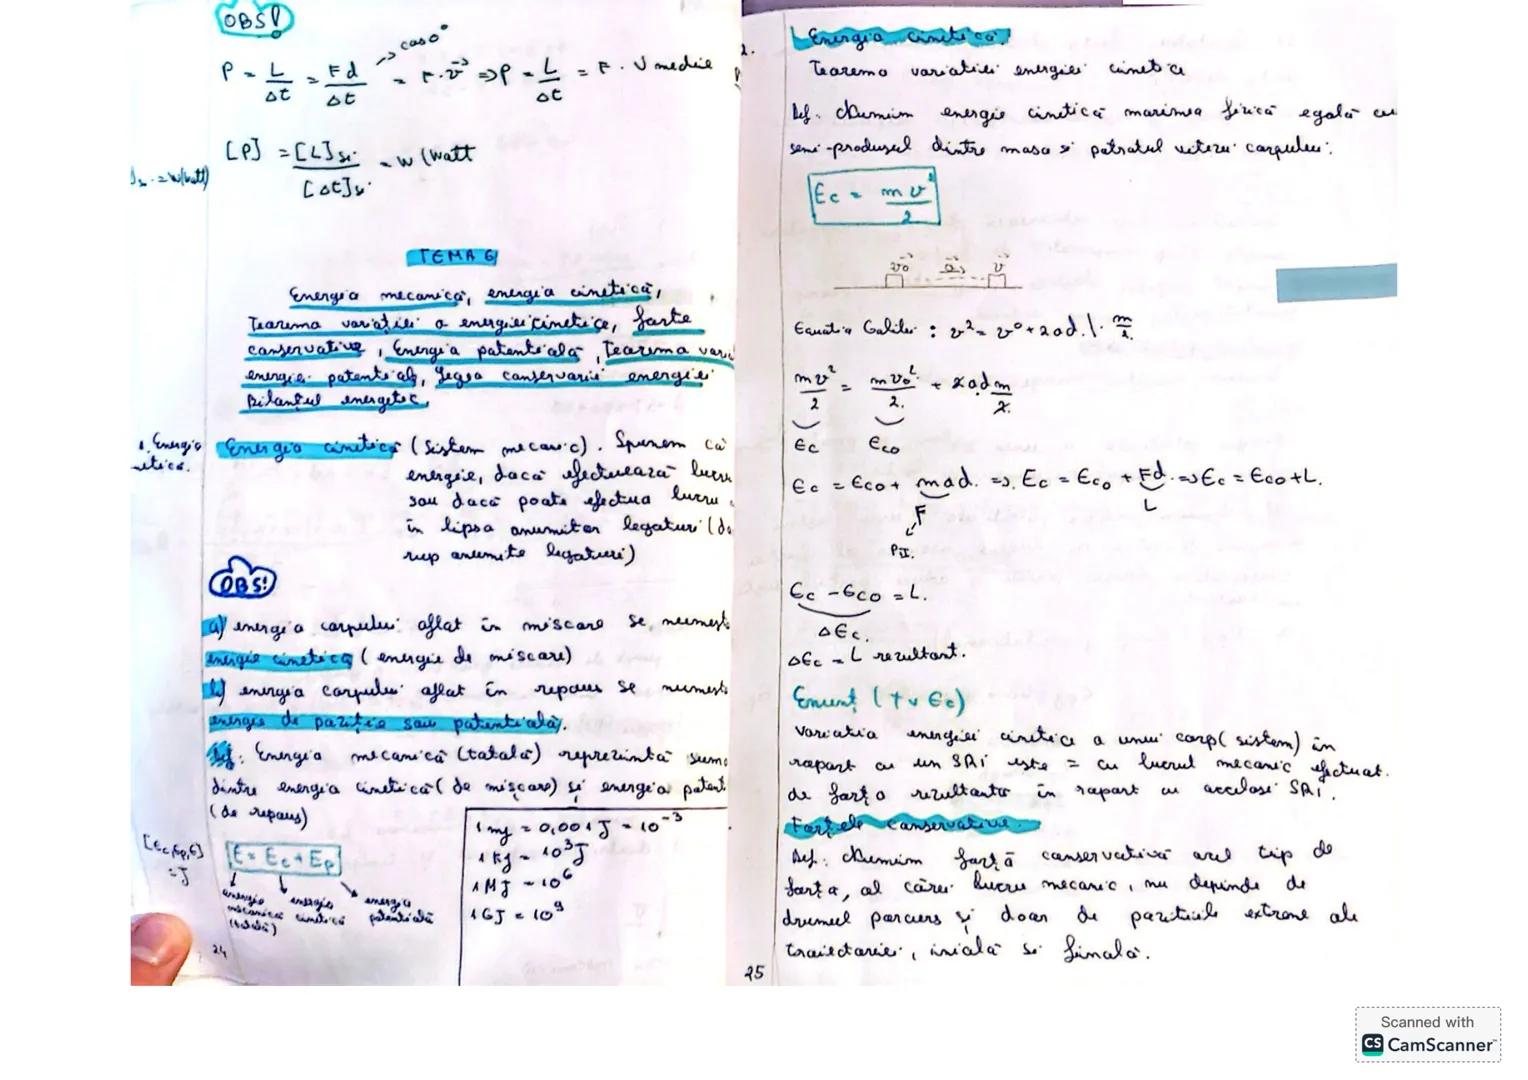 OBS!
→ cos 0°
P = L/Δt = Fd/Δt = F·v ⇒ P = L/Δt = F·v medie
[P] = [L]SI/[Δt]SI = W (Watt
TEMA 6
Energia mecanică, energia cinetică,
Teorema variației a energiei cinetice, forțe
conservative, Energia potențială, Teorema
energiei potențiale, Legea conservării energiei
Bilanțul energetic,
1. Energia
Energia cinetică (Sistem mecanic). Spunem că
energie, dacă efectuează
sau dacă poate efectua lucru
în lipsa anumitor legături
rup anumite legături)
OBS!
a) energia corpului aflat în mișcare se
energie cinetică (energie de mișcare)
b) energia corpului aflat în repaus se
energie de poziție sau potențială.
Def: Energia mecanică (totală) reprezintă
dintre energia cinetică (de mișcare) și energia
(de repaus)
[Ec, Ep, E]
= J
E = Ec + Ep
energie mecanică (totală)
energie cinetică
energia potențială
1 mJ = 0,001 J = 10⁻³
1 KJ = 10³ J
1 MJ = 10⁶
1 GJ = 10⁹
24
2.
Energia cinetică
Teorema variației energiei cinetice
Def. Numim energie cinetică mărimea fizică egală cu
semi-produsul dintre masa și pătratul vitezei corpului.
Ec = mv²/2
v₀ a v
Ecuația Galilei : v² = v⁰ + 2ad. |· m/2
mv²/2 = mv₀²/2 + 2ad m/2
Ec Eco
Ec = Eco + mad. ⇒ Ec = Eco + Fd. ⇒ Ec = Eco + L.
F L
P II.
Ec - Eco = L.
ΔEc.
ΔEc = L rezultant.
Enunț (T v Ec)
Variația energiei cinetice a unui corp (sistem) în
raport cu un SRI este = cu lucrul mecanic efectuat.
de forța rezultantă în raport cu același SRI.
Forțele conservative.
Def: Numim forță conservativă acel tip de
forța, al cărei lucru mecanic, nu depinde de
drumul parcurs și doar de pozițiile extreme ale
traiectoriei, inială și finală.
25
Scanned with
CS CamScanner